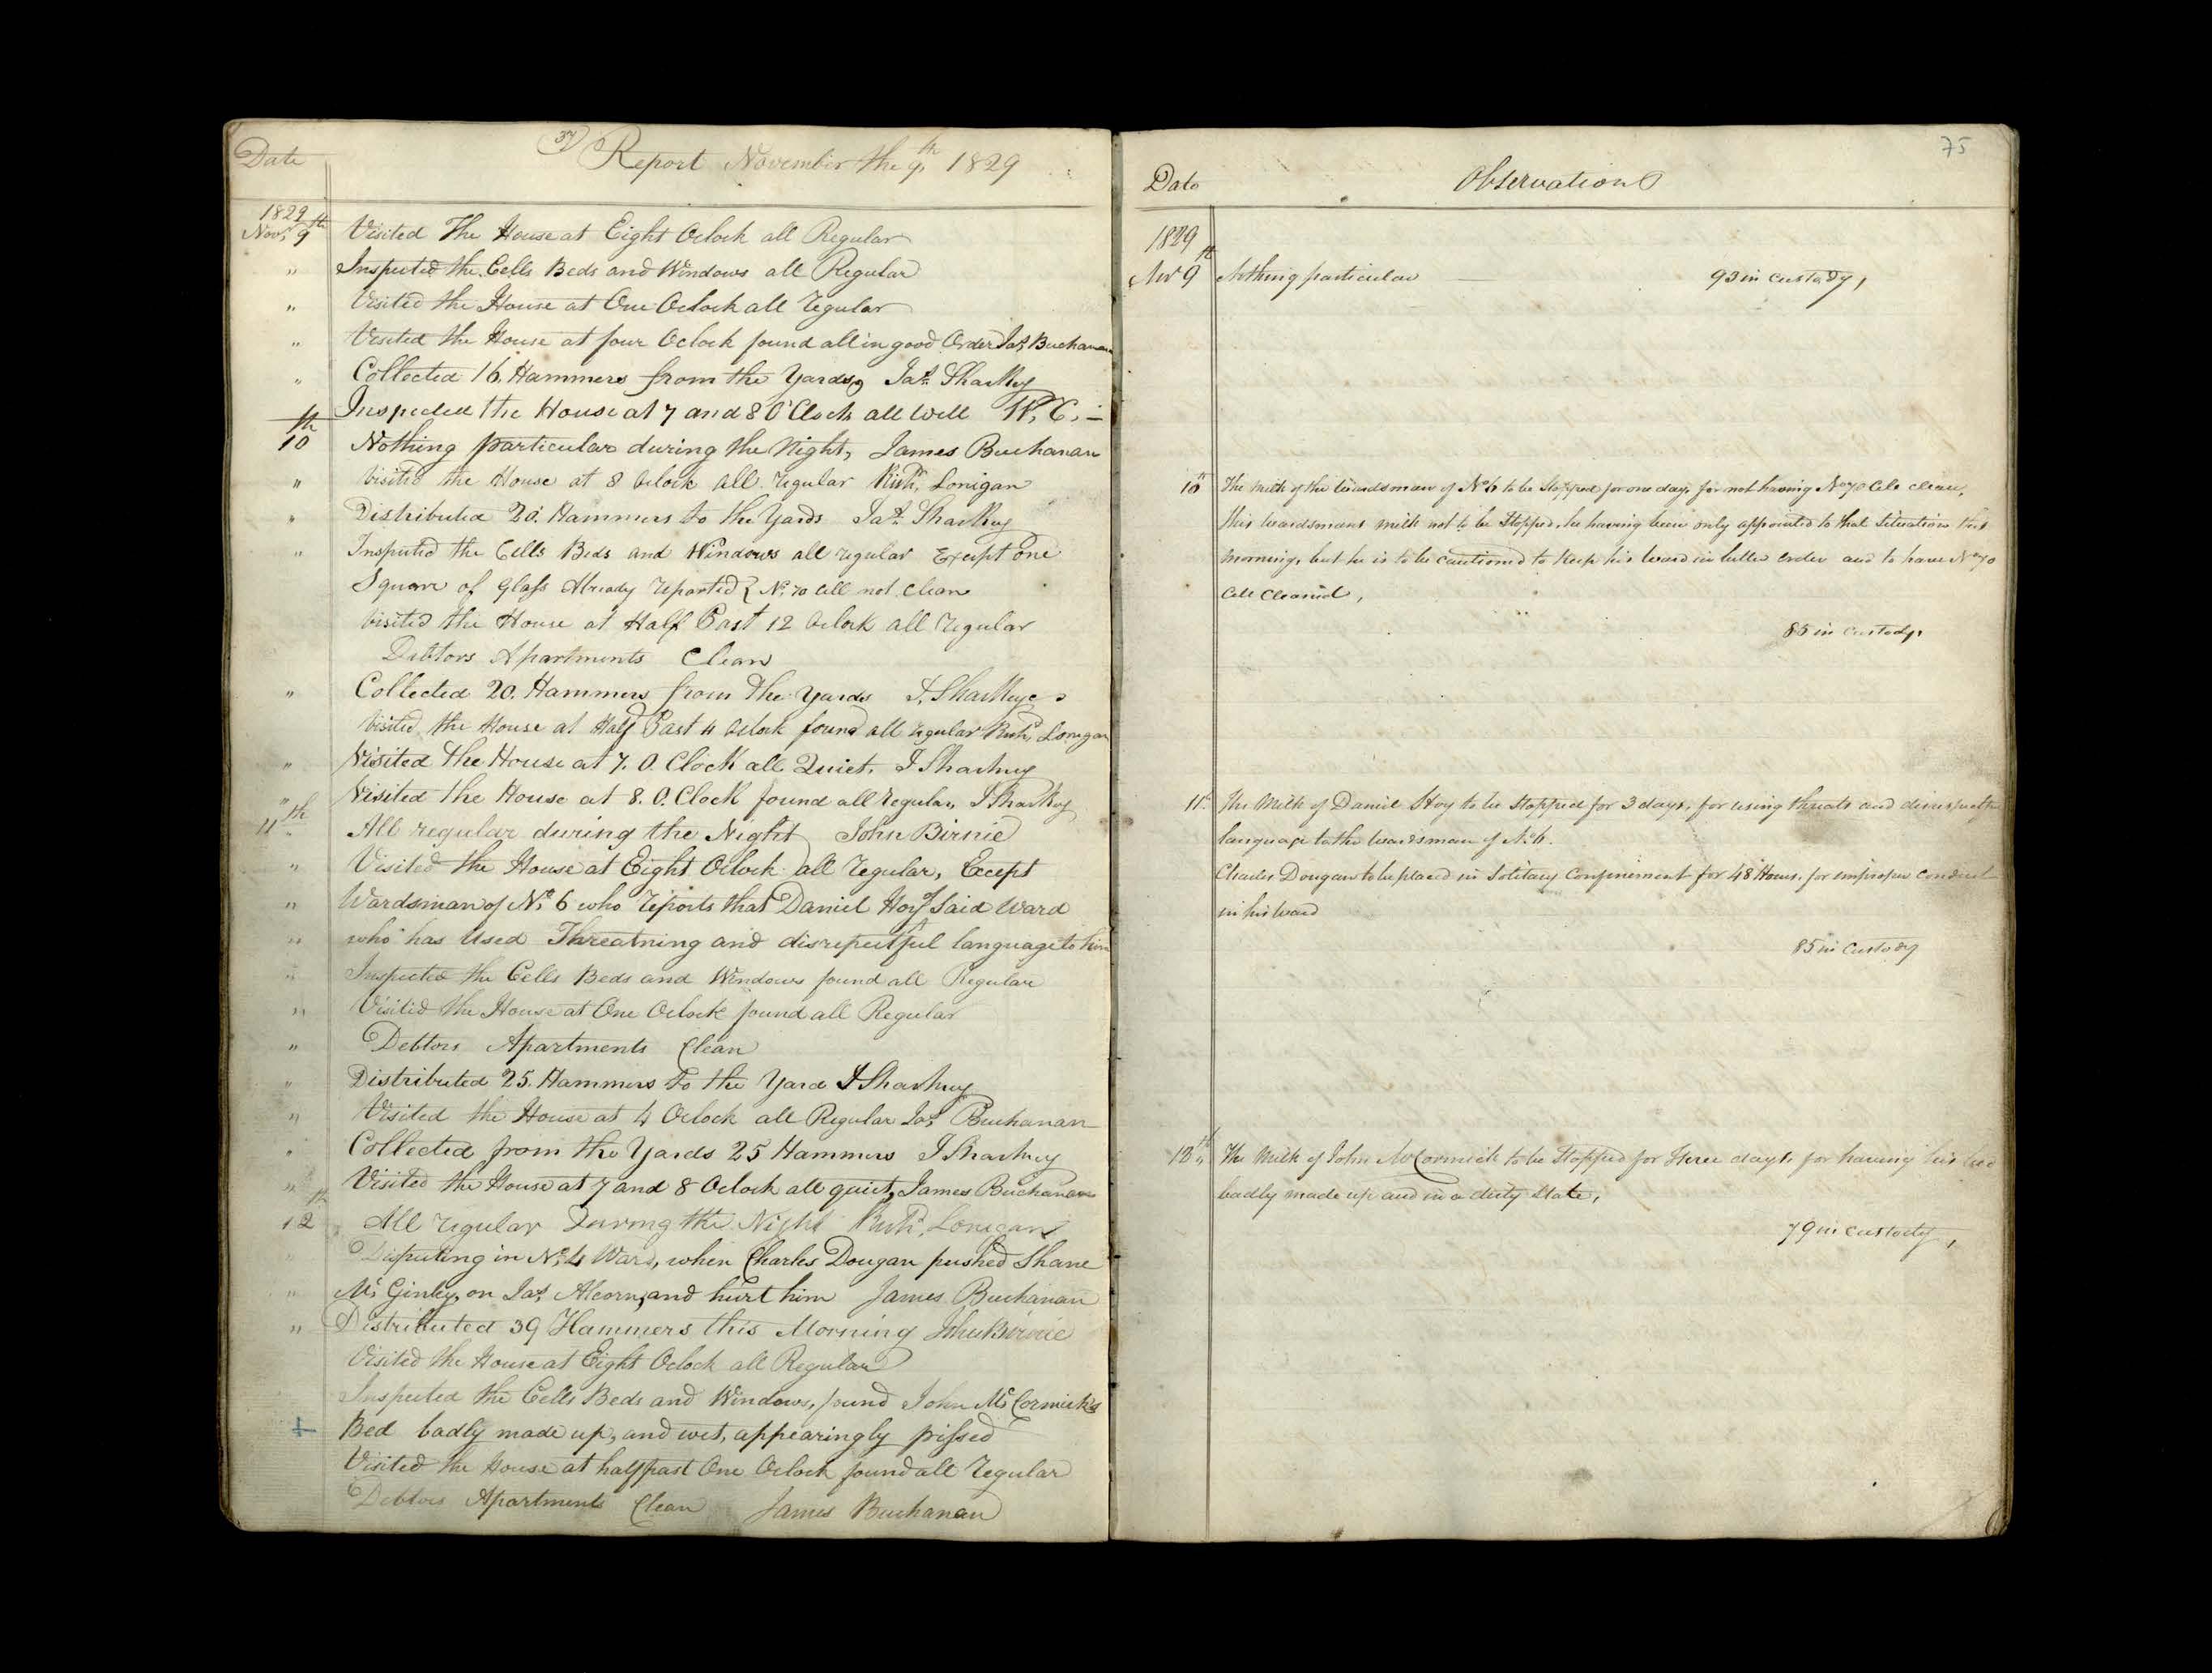 Date
37 Report November the 9th 1829
1829
Novr 9th Visited The House at Eight Oclock all Regular
" Inspected the Cells Beds and Windows all Regular
" Visited the House at One Oclock all regular
" Visited the House at four Oclock found all in good Order Jas Buchanan
" Collected 16 Hammers from the Yards, Jas Sharkey
Inspected the House at 7 and 8 O'Clock all well W. C. –
10th Nothing particular during the Night, James Buchanan
" Visited the House at 8 Oclock all regular Richd Lonigan
" Distributed 20. Hammers to the Yards Jas Sharkey
" Inspected the Cells Beds and Windows all regular Except one
Square of Glass Already reported { No 70 Cell not Clean
Visited the House at Half Past 12 Oclock all regular
Debtors Apartments Clean
" Collected 20. Hammers from the Yards J. Sharkey
Visited the House at Half Past 4 Oclock found all regular Richd Lonigan
" Visited the House at 7. O. Clock all Quiet. J Sharkey
" Visited the House at 8. O. Clock found all regular, J Sharkey
11th All regular during the Night John Birnie
" Visited the House at Eight Oclock all regular, Except
" Wardsman of No 6 who reports that Daniel Hoy of Said Ward
" who has used Threatning and disrepectful language to him
" Inspected the Cells Beds and Windows found all Regular
" Visited the House at One Oclock found all Regular
" Debtors Apartments Clean
" Distributed 25. Hammers to the Yard J Sharkey
" Visited the House at 4 Oclock all Regular Jas Buchanan
" Collected from the Yards 25 Hammers J Sharkey
" Visited the House at 7 and 8 Oclock all quiet, James Buchanan
12th All regular During the Night Richd Lonigan
" Disputing in No 4 Ward, when Charles Dougan pushed Shane
" Mc Ginley, on Jas Alcorn, and hurt him James Buchanan
" Distributed 39 Hammers this Morning John Birnie
Visited the House at Eight Oclock all Regular
Inspected the Cells Beds and Windows, found John McCormicks
+ Bed badly made up, and wet, appearingly pissed
Visited the House at half past One Oclock found all regular
Debtors Apartments Clean James Buchanan
75
Date Observations
1829
Nov 9th Nothing particular 93 in custody,
10th The Milk of the Wardsman of No 6 to be Stopped for one day, for not having No 70 Cell clean,
this wardsmans milk not to be Stopped, he having been only appointed to that Situation this
morning, but he is to be cautioned to keep his ward in better order and to have No 70
Cell Cleaned,
85 in custody,
11th The Milk of Daniel Hoy to be Stopped for 3 days, for using threats and disrespectful
language to the wardsman of No 6.
Charles Dougan to be placed in Solitary Confinement for 48 Hours, for improper conduct
in his ward
85 in Custody
12th The Milk of John McCormick to be Stopped for three days, for having his bed
badly made up and in a dirty State,
79 in custody,